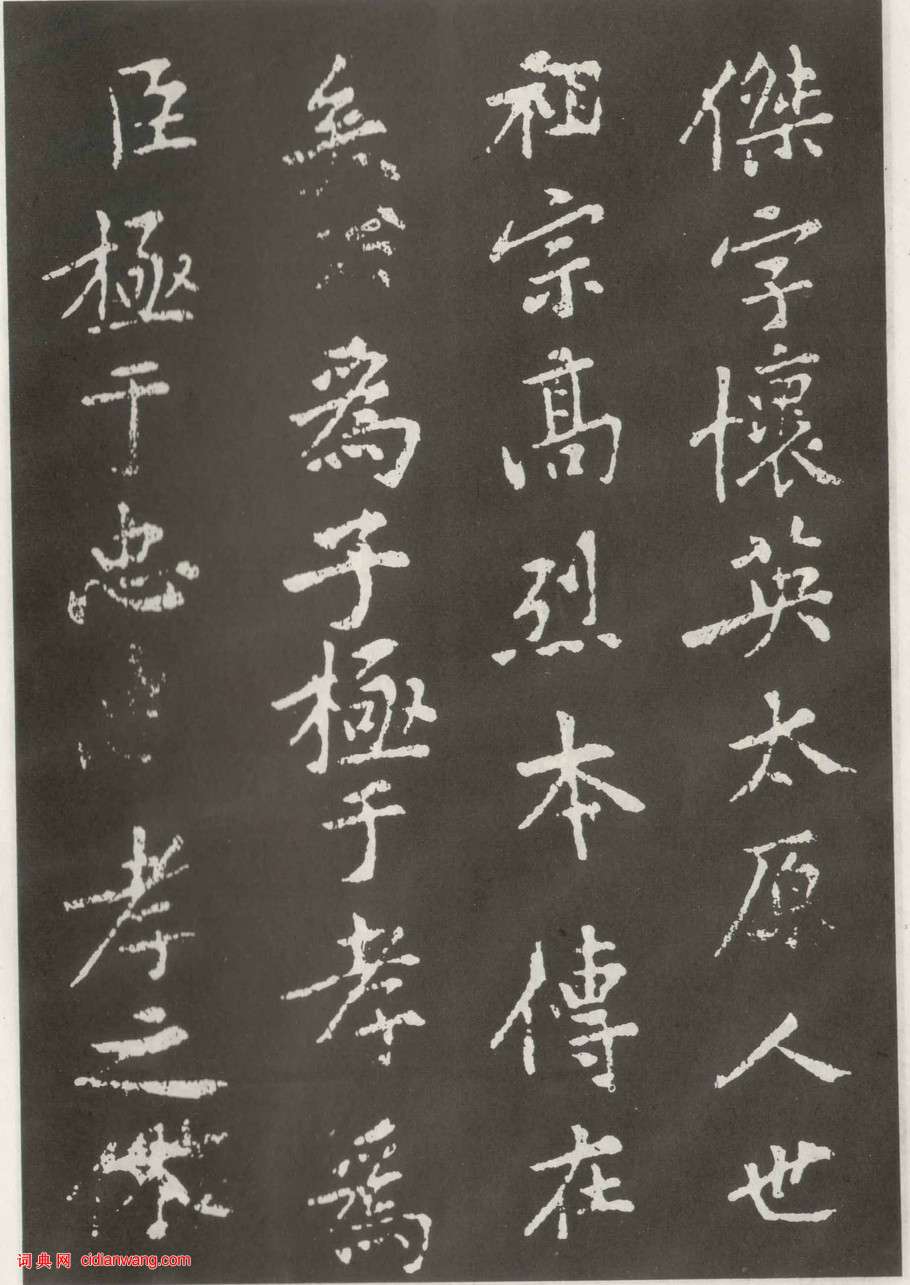 傑字懷英太原人世
祖宗高烈本傳在
矣為子極于孝為
臣極于忠孝之
词典网 cidianwang.com